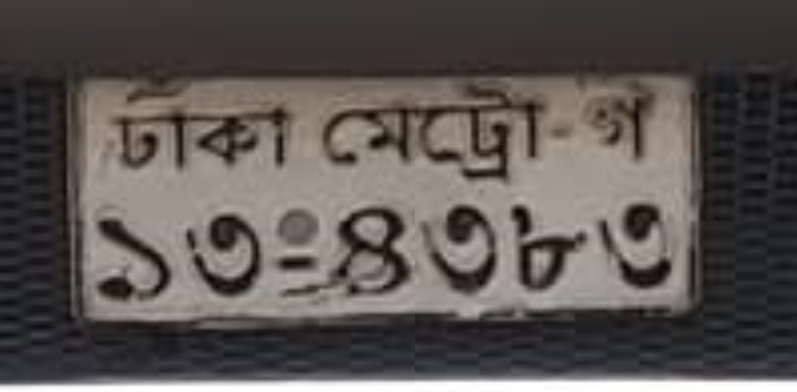 ঢাকা মেট্রো-গ
১৩-৪৩৮৩